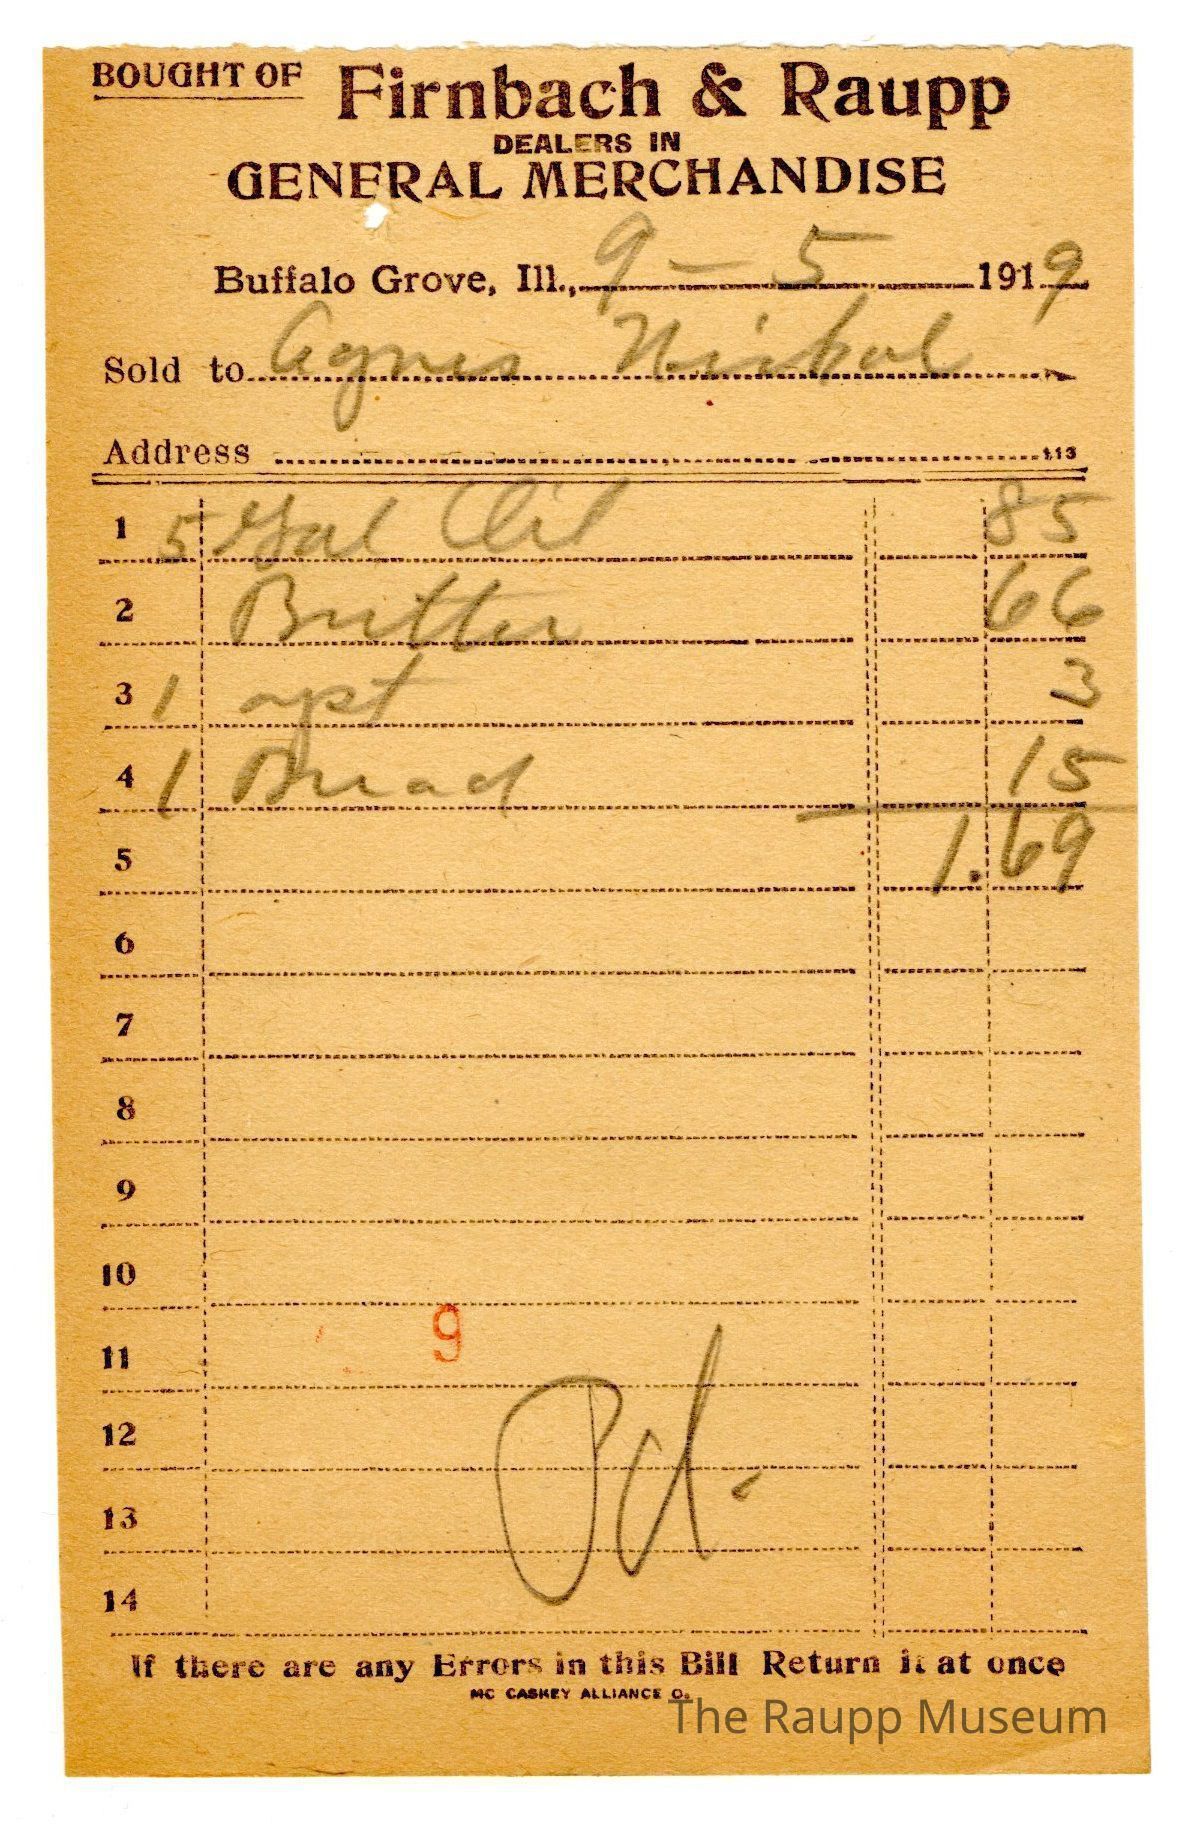 BOUGHT OF Firnbach & Raupp
DEALERS IN
GENERAL MERCHANDISE
Buffalo Grove, Ill., 9 - 5 1919
Sold to Agnes
Address 113
1 5 Gal Oil 85
2 Butter 66
3 1 3
4 1 Bread 15
5 1.69
6
7
8
9
10
9
11
12
Pd.
13
14
If there are any Errors in this Bill Return it at once
MC CASKEY ALLIANCE O.
The Raupp Museum